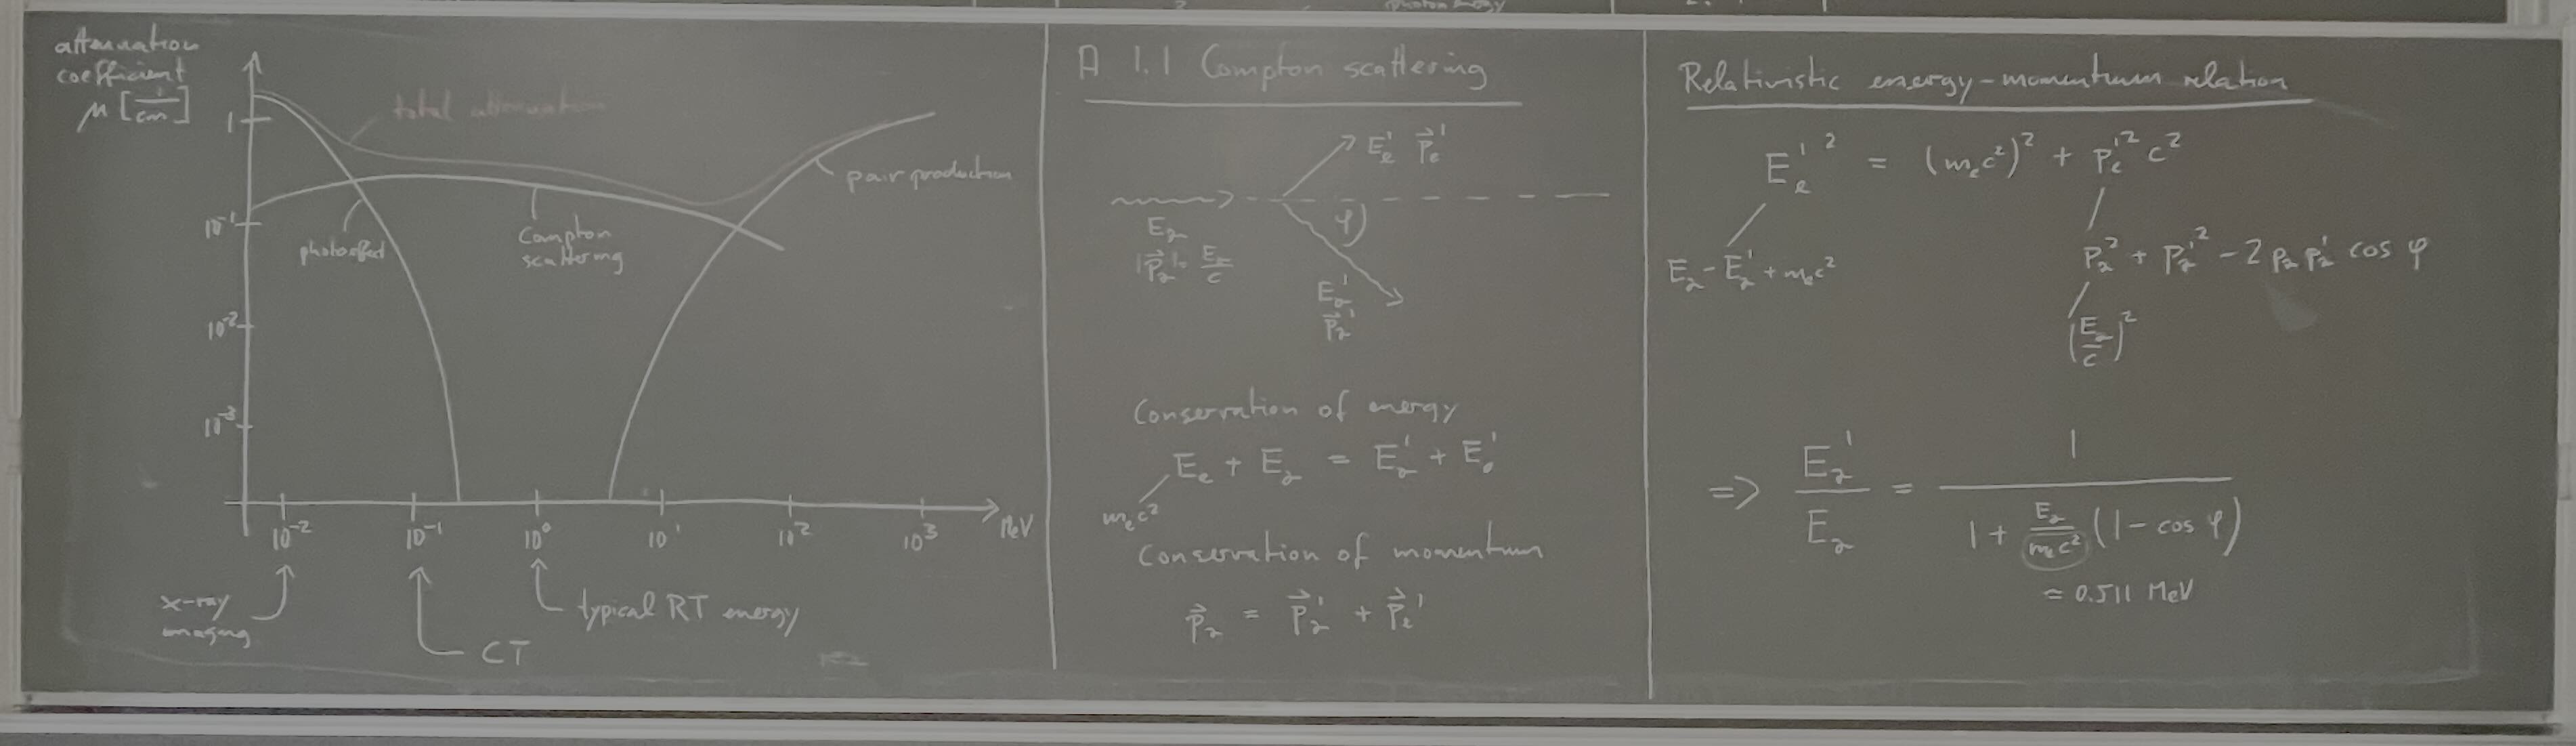 photon energy
attenuation
coefficient
μ [1/cm]
1
10⁻¹
10⁻²
10⁻³
total attenuation
photoeffect
Compton
scattering
pair production
10⁻² 10⁻¹ 10⁰ 10¹ 10² 10³ MeV
x-ray
imaging
CT
typical RT energy
A 1.1 Compton scattering
E'ₑ p⃗'ₑ
E_γ
|p⃗_γ| = E_γ/c
φ
E'_γ
p⃗'_γ
Conservation of energy
Eₑ + E_γ = E'_γ + E'ₑ
mₑc²
Conservation of momentum
p⃗_γ = p⃗'_γ + p⃗'ₑ
Relativistic energy-momentum relation
E'ₑ² = (mₑc²)² + p'ₑ² c²
E_γ - E'_γ + mₑc²
p_γ² + p'_γ² - 2 p_γ p'_γ cos φ
(E_γ/c)²
=> E'_γ/E_γ = 1/(1 + E_γ/mₑc² (1 - cos φ))
≈ 0.511 MeV